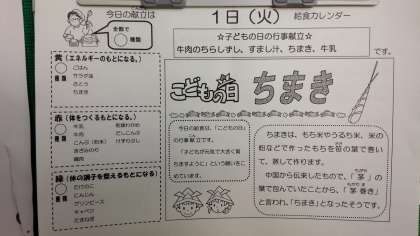 今日の献立は
全部で
種類
１日（火）
給食カレンダー
☆子どもの日の行事献立☆
牛肉のちらしずし、すまし汁、ちまき、牛乳
です。
黄（エネルギーのもとになる。）
ごはん
サラダ油
さとう
ちまき
種類
赤（体をつくるもとになる。）
牛乳
牛肉
種類
緑（体の調子を整えるもとになる）
たけのこ
にんじん
グリンピース
キャベツ
たまねぎ
種類
こどもの日
ちまき
今日の給食は、「こどもの日」
の行事献立です。
「子どもが元気で大きく育
ちますように」という願いをこ
めています。
ちまきは、もち米やうるち米、米の
粉などで作ったもちを笹の葉で巻い
て、蒸して作ります。
中国から伝来したもので、「茅」の
葉で包んでいたことから、「茅巻き」
と言われ、「ちまき」となったそうです。